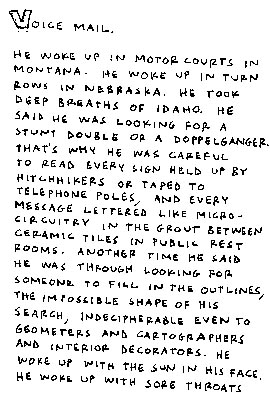 VOICE MAIL.
HE WOKE UP IN MOTOR COURTS IN
MONTANA. HE WOKE UP IN TURN
ROWS IN NEBRASKA. HE TOOK
DEEP BREATHS OF IDAHO. HE
SAID HE WAS LOOKING FOR A
STUNT DOUBLE OR A DOPPELGANGER.
THAT'S WHY HE WAS CAREFUL
TO READ EVERY SIGN HELD UP BY
HITCHHIKERS OR TAPED TO
TELEPHONE POLES, AND EVERY
MESSAGE LETTERED LIKE MICRO-
CIRCUITRY IN THE GROUT BETWEEN
CERAMIC TILES IN PUBLIC REST
ROOMS. ANOTHER TIME HE SAID
HE WAS THROUGH LOOKING FOR
SOMEONE TO FILL IN THE OUTLINES,
THE IMPOSSIBLE SHAPE OF HIS
SEARCH, INDECIPHERABLE EVEN TO
GEOMETERS AND CARTOGRAPHERS
AND INTERIOR DECORATORS. HE
WOKE UP WITH THE SUN IN HIS FACE.
HE WOKE UP WITH SORE THROATS